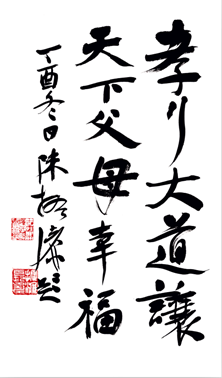 孝行大道讓
天下父母幸福
丁酉冬日陈